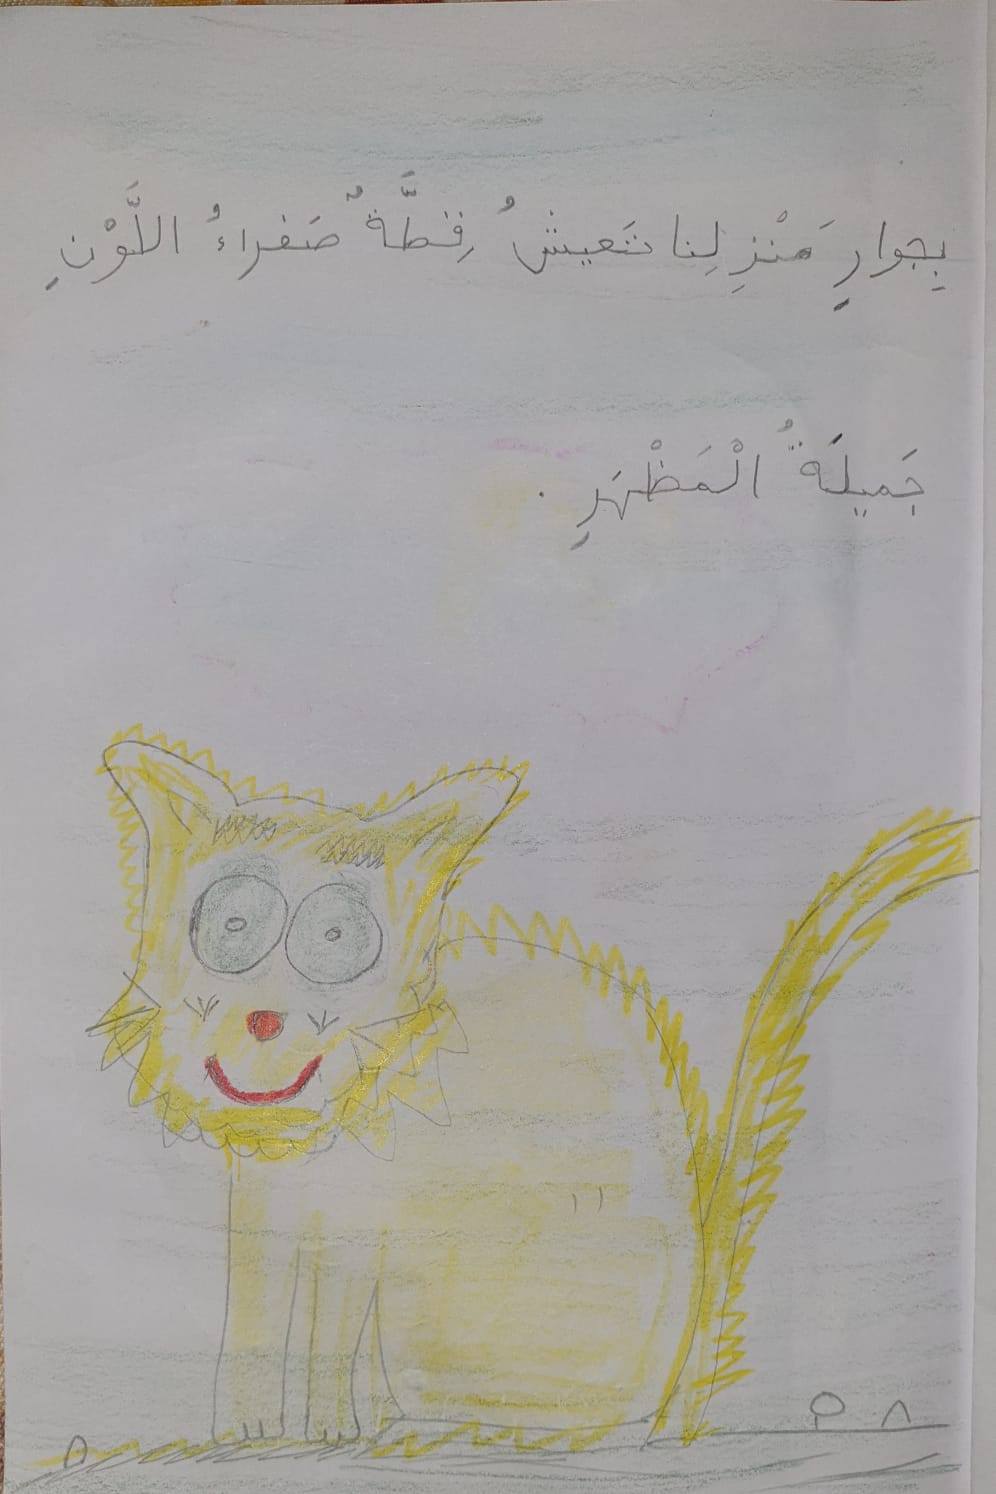 بِجوارِ مَنْزِلِنا تَعيشُ قِطَّةٌ صَفراءُ اللَّوْنِ
جَميلَةُ الْمَظْهَرِ .